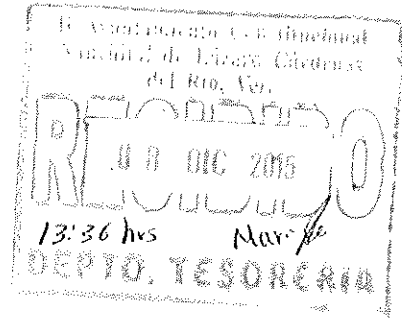 H. Ayuntamiento Constitucional
de Lázaro Cárdenas
del Río, Ver.
RECIBIDO
08 DIC 2015
13:36 hrs
DEPTO. TESORERIA